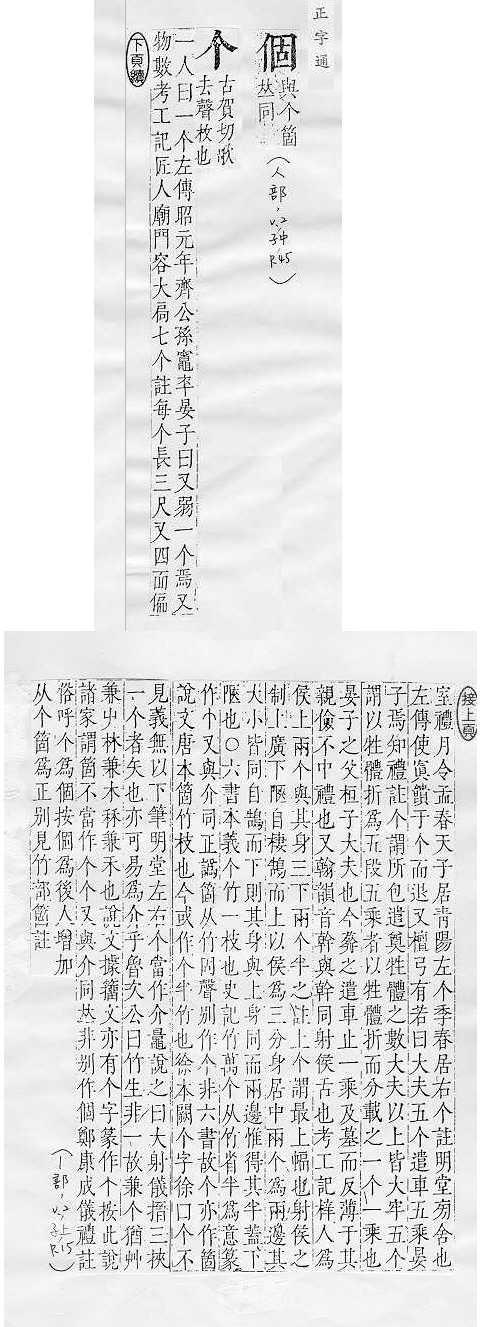 正字通
個
與个箇
𠀤同
(人部,
个
古賀切歌
去聲枚也
一人曰一个左傳昭元年齊公孫竈卒晏子曰又弱一个焉又
物數考工記匠人廟門容大扃七个註每个長三尺又四面偏
下頁續
接上頁
室禮月令孟春天子居青陽左个季春居右个註明堂旁舍也
左傳使寘饋于个而退又檀弓有若曰大夫五个遣車五乘晏
子焉知禮註个謂所包遣奠牲體之數大夫以上皆大牢五个
謂以牲體折為五段五乘者以牲體折而分載之一个一乘也
晏子之父桓子大夫也今葬之遣車止一乘及墓而反薄于其
親儉不中禮也又翰韻音幹與幹同射侯舌也考工記梓人為
侯上兩个與其身三下兩个半之註上个謂最上幅也射侯之
制上廣下陿自棲鵠而上以侯為三分身居中兩个為兩邊其
大小皆同自鵠而下則其身與上身同而兩邊惟得其半蓋下
陿也○六書本義个竹一枝也史記竹萬个从竹省半為意篆
作个又與介司正譌箇从竹固聲別作个非六書故个亦作箇
說文唐本箇竹枝也今或作个半竹也徐本闕个字徐曰个不
見義無以下筆明堂左右个當作介鼂說之曰大射儀搢三挾
一个者矢也亦可易為介乎魯次公曰竹生非一故兼个猶艸
兼屮林兼木秝兼禾也說文據籀文亦有个字篆作个按此說
諸家謂箇不當作个个又與介同𠀤非別作個鄭康成儀禮註
俗呼个為個按個為後人增加
从个箇為正別見竹部箇註